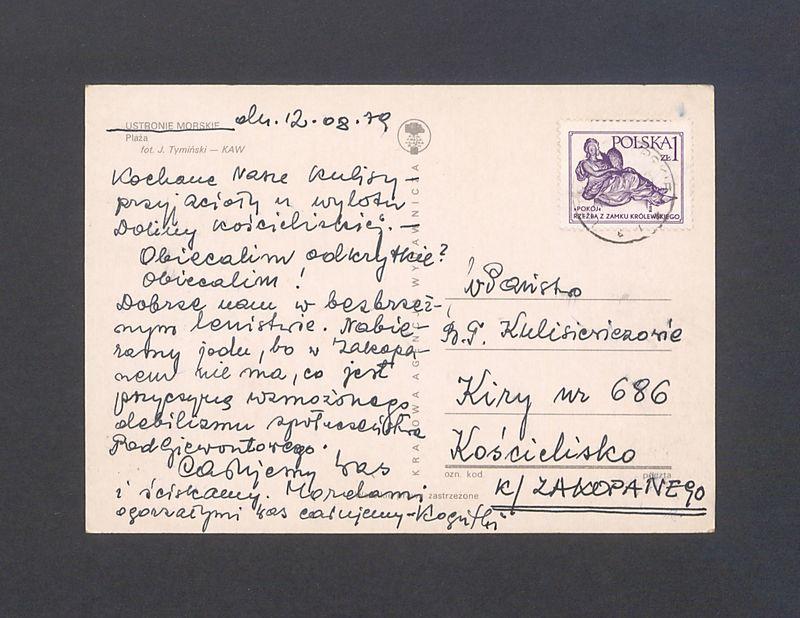 USTRONIE MORSKIE dn. 12.08.79
Plaża
fot. J. Tymiński — KAW
Kochane Nasze Kulisy –
przyjacioły u wylotu
Doliny Kościeliskiej. –
Obiecalim odkrytkie?
Obiecalim!
Dobrze nam w bezbrzeż-
nym lenistwie. Nabie-
ramy jodu, bo w Zakopa-
nem nie ma, co jest
przyczyną wzmożonego
debilizmu społeczeństwa
PodGiewontowego.
Całujemy Was
i ściskamy. Mordami
ogorzałymi was całujemy – Kogutki
KRAJOWA AGENCJA WYDAWNICZA
POLSKA 1
ZŁ
«POKÓJ»
RZEŹBA Z ZAMKU KRÓLEWSKIEGO
WPaństwo
B.T. Kulisiewiczowie
Kiry nr 686
Kościelisko
ozn. kod poczta
k/ZAKOPANEGO
zastrzeżone